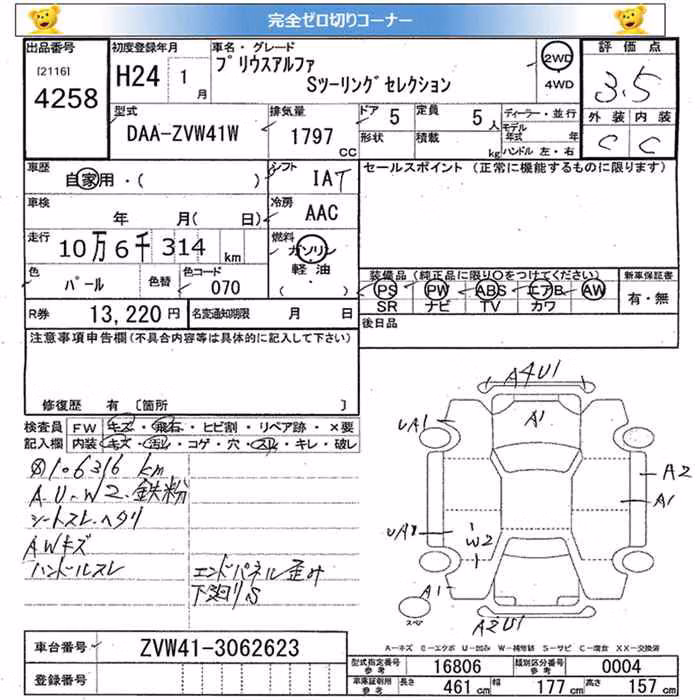 完全ゼロ切りコーナー
出品番号
[2116]
4258
初度登録年月
H24 1月
車名・グレード
プリウスアルファ
Sツーリングセレクション
2WD
4WD
評価点
3.5
外装 内装
C C
型式
DAA-ZVW41W
排気量
1797 CC
ドア 5
定員 5人
形状
積載 kg
ディーラー・並行
モデル年式 年
ハンドル 左・右
車歴
自家用・( )
シフト
IAT
セールスポイント (正常に機能するものに限ります)
車検
年 月( 日)
冷房
AAC
走行
10万6千314 km
燃料
ガソリン
軽油
( )
色
パール
色替
色コード
070
装備品(純正品に限り○をつけてください)
PS PW ABS エアB AW
SR ナビ TV カワ
新車保証書
有・無
R券 13,220円
名変通知期限 月 日
後日品
注意事項申告欄(不具合内容等は具体的に記入して下さい)
修復歴 有 [箇所 ]
検査員記入欄
FW キズ・飛石・ヒビ割・リペア跡・×要
内装 キズ・汚レ・コゲ・穴・スレ・キレ・破レ
106316 km
A.U.W2.鉄粉
シートスレ.ヘタリ
AWキズ
ハンドルスレ
エンドパネル歪み
下廻りS
A4U1
A1
UA1
A2
A1
UA1
W2
A1
スペア
A2U1
A-キズ E-エクボ U-凹み W-補修跡 S-サビ C-腐食 XX-交換済
車台番号 ZVW41-3062623
登録番号
型式指定番号 参考 16806
類別区分番号 参考 0004
車庫証明用 参考 長さ 461 cm 幅 177 cm 高さ 157 cm